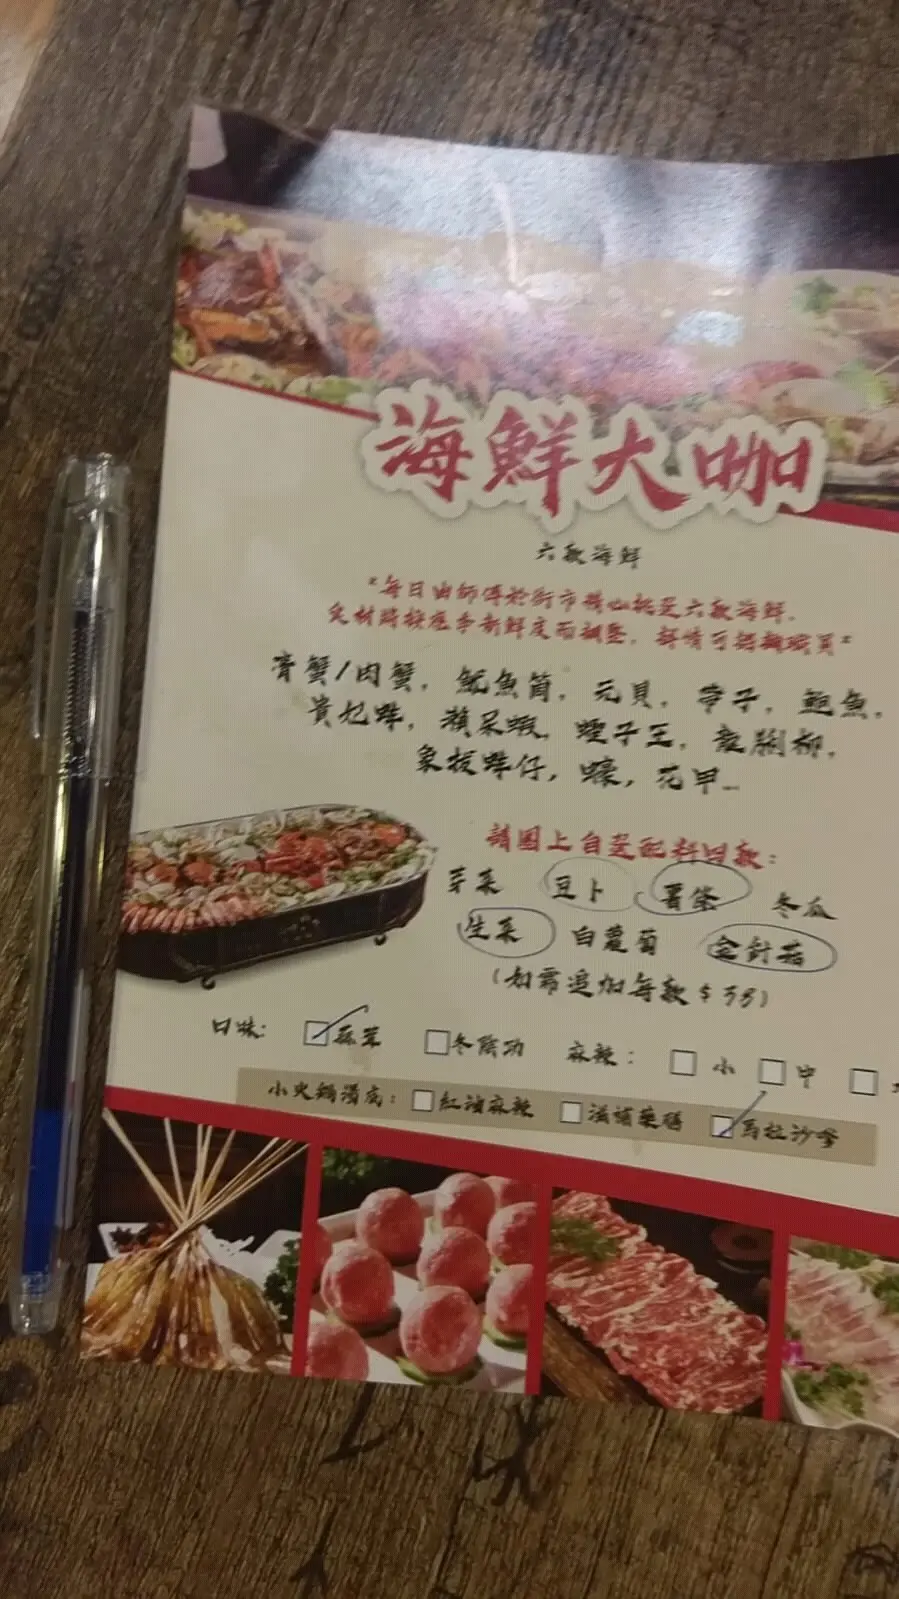 海鮮大咖
六款海鮮
*每日由師傅於街市精心挑選六款海鮮,
食材將按應季新鮮度而調整, 詳情可諮詢職員*
膏蟹/肉蟹, 魷魚筒, 元貝, 帶子, 鮑魚,
貴妃蚌, 瀨尿蝦, 蟶子王, 龍脷柳,
象拔蚌仔, 蠔, 花甲...
請圈上自選配料四款:
芽菜 豆卜 薯條 冬瓜
生菜 白蘿蔔 金針菇
(如需追加每款$38)
口味: 蒜茸 冬陰功 麻辣: 小 中
小火鍋湯底: 紅油麻辣 滋補藥膳 馬拉沙嗲